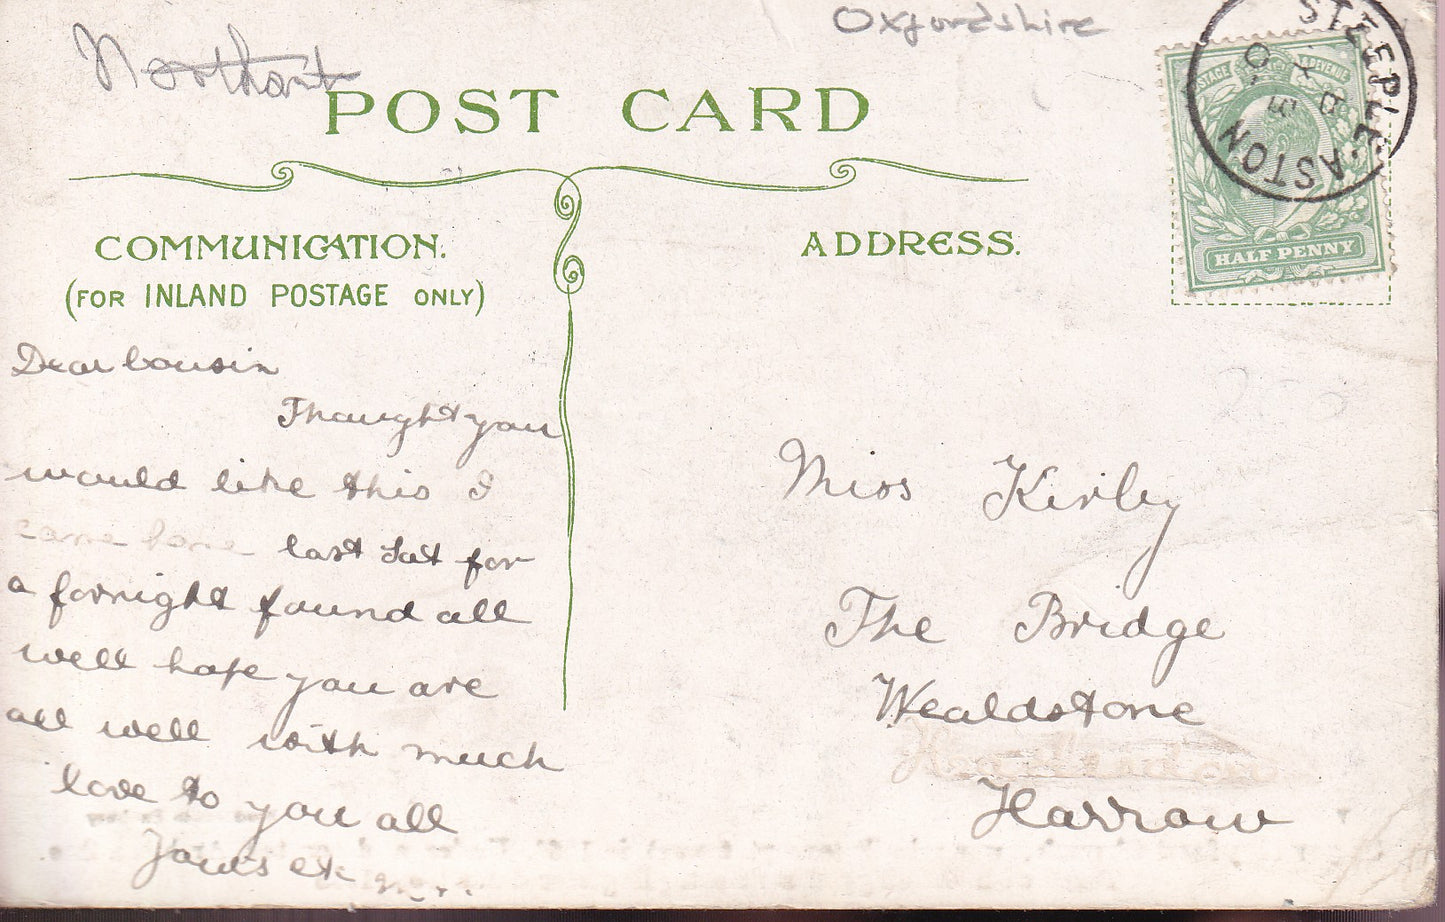 Oxfordshire
Northant
POST CARD
COMMUNICATION.
(FOR INLAND POSTAGE ONLY)
ADDRESS.
STEEPLE ASTON
POSTAGE & REVENUE
HALF PENNY
Dear Cousin
Thaught you
would like this I
came home last Sat for
a fornight found all
well hope you are
all well with much
love to you all
Yours etc
Miss Kirley
The Bridge
Wealdstone
Harrow